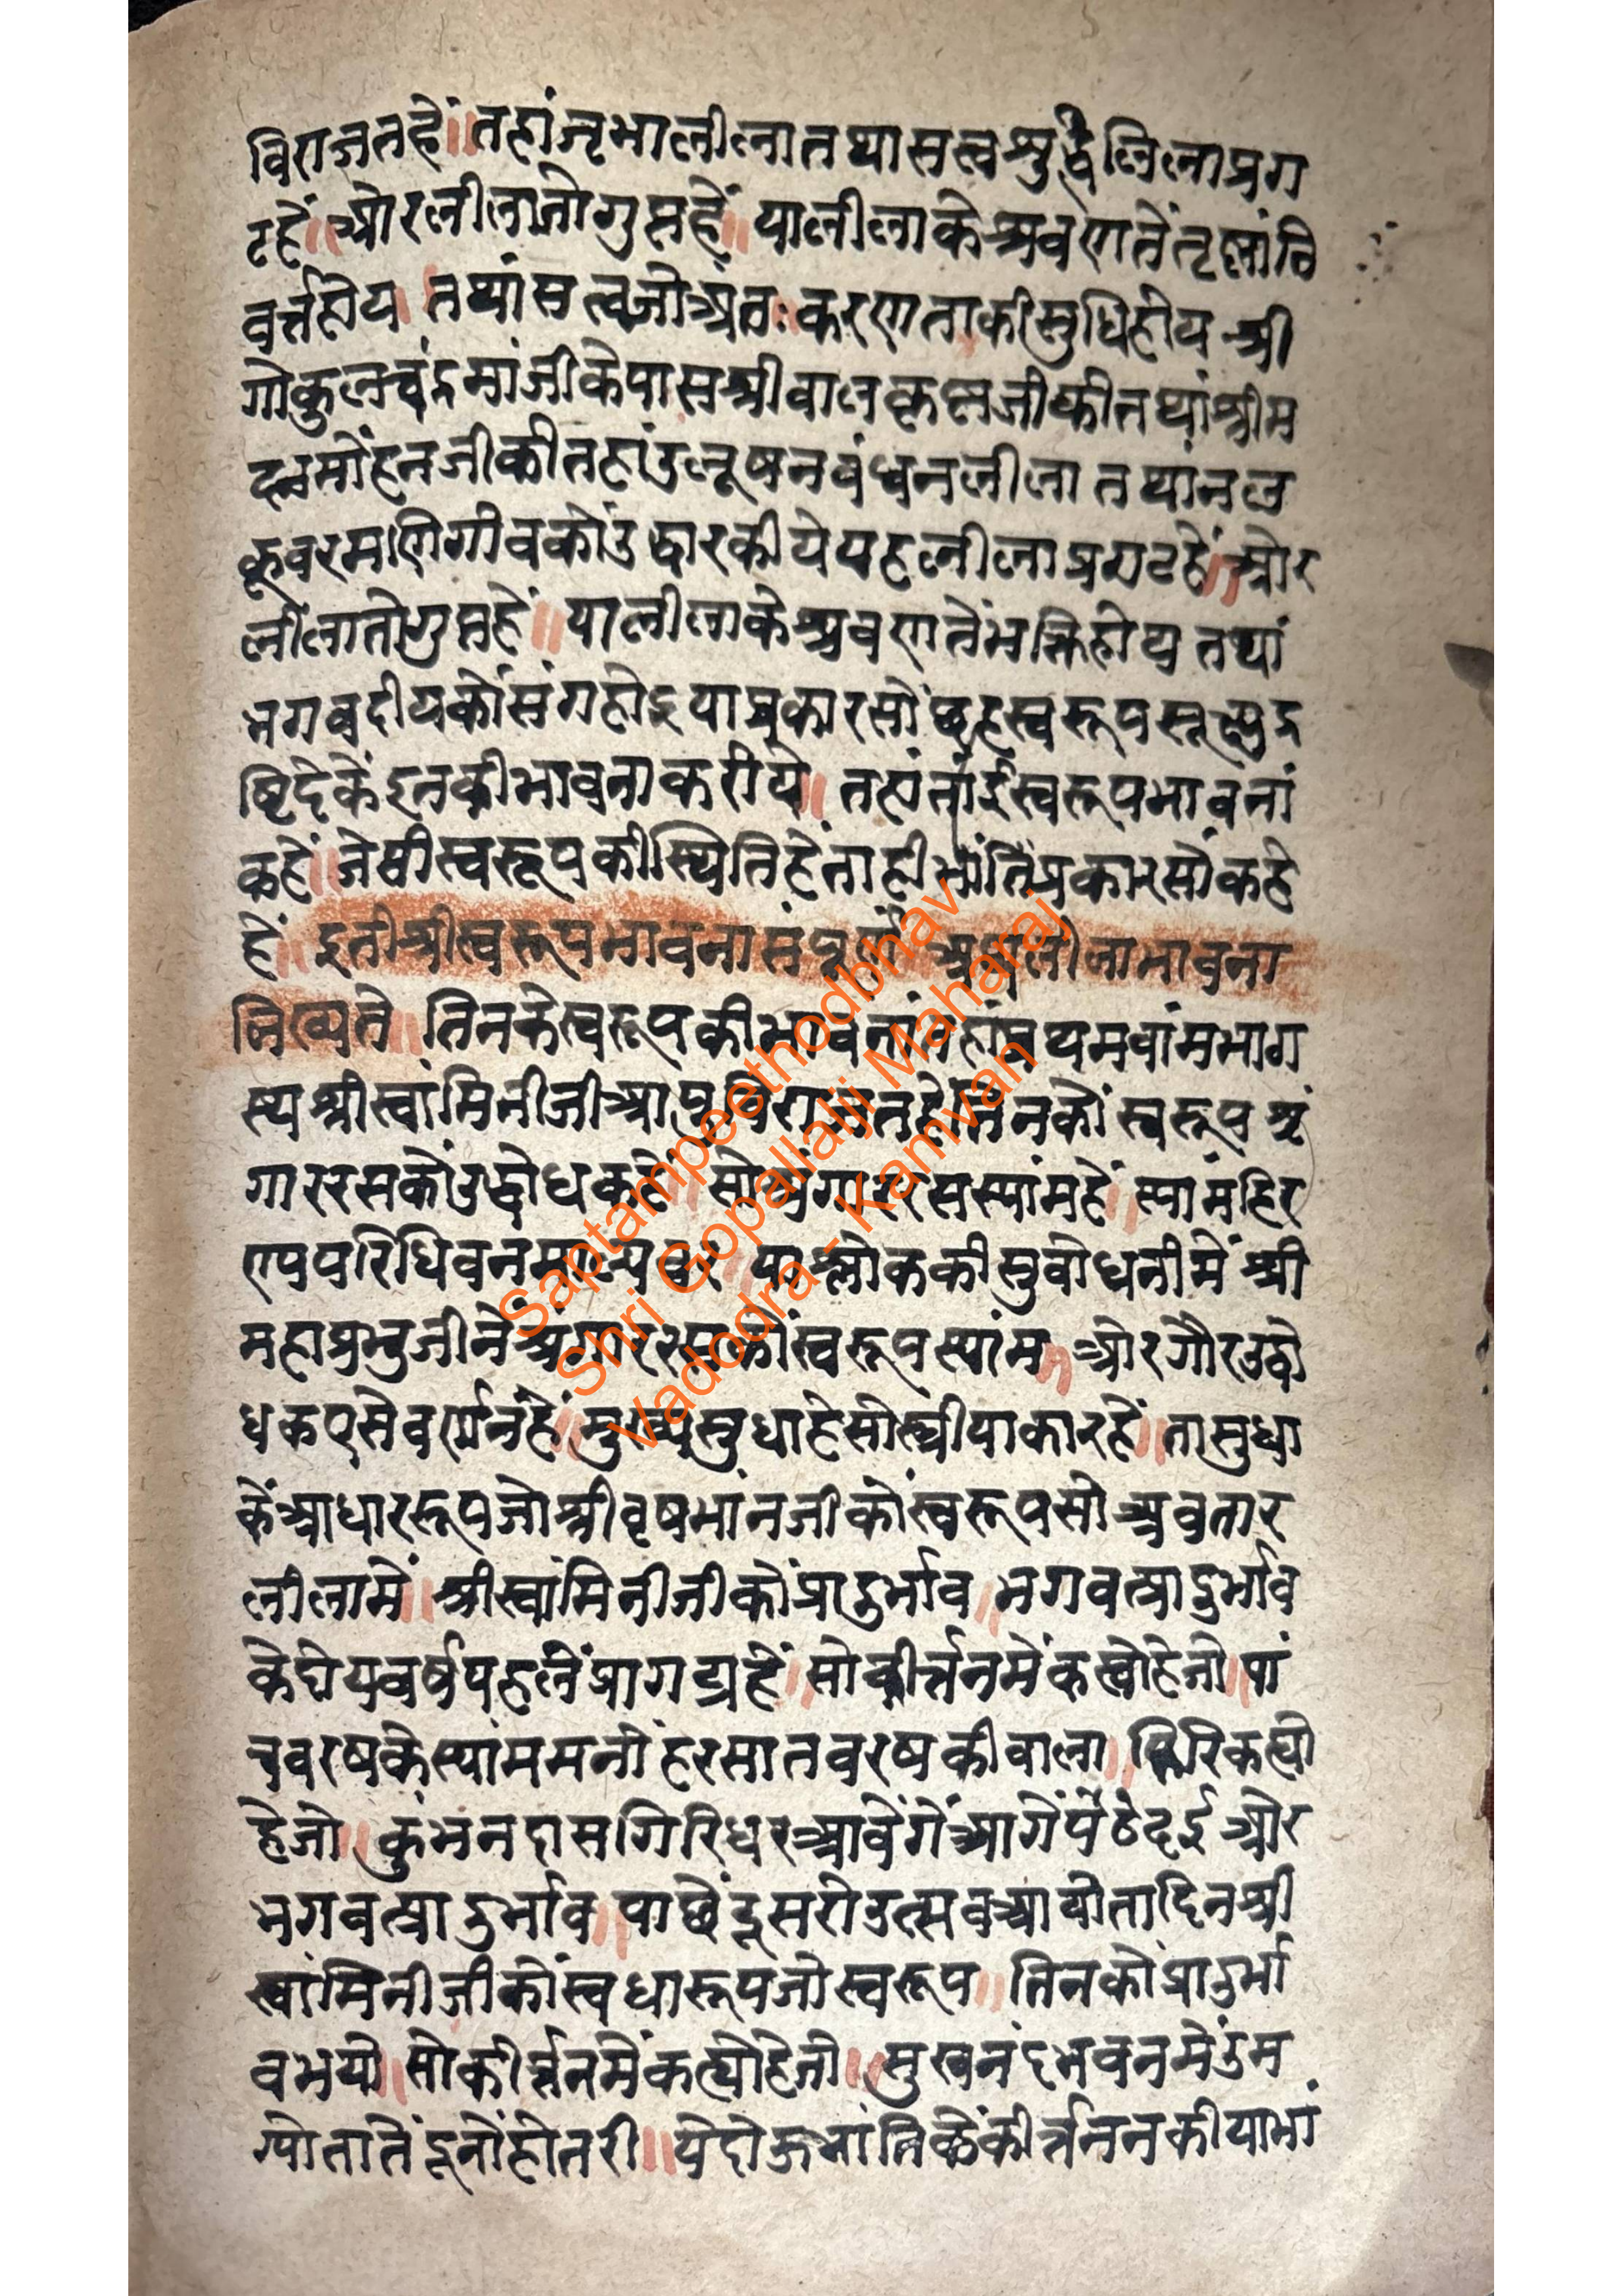 विराजतहें॥तहांजृभालीलातथासत्वश्रुद्धिलिलाप्रग
टहें॥ओरलीलातोगुप्तहें॥यालीलाकेश्रवणतेंतृष्णांनि
वर्त्तहोय।तथांसत्वजोअंतःकरणताकीसुधिहोयश्री
गोकुलचंद्रमांजीकेपासश्रीबालकृष्णजीकीतथांश्रीम
दनमोंहनजीकीतहांउलूषनबंधनलीलातथांनल
कूबरमणिग्रीवकोंउद्धारकीयेयहलीलाप्रगटहें॥ओर
लीलातोगुप्तहें॥यालीलाकेश्रवणतेंभक्तिहोय तथां
भगवदीयकोसंगहोइयाप्रकारसोंछहस्वरूपसूक्ष्मद्र
ष्टिदेकेंइनकीभावनाकरीये॥तहांतांईस्वरूपभावनां
कहें॥जेसीस्वरूपकीस्थितिहेंताहीभांतिप्रकारसोंकहे
हें॥इतीश्रीस्वरूपभावनासंपूर्ण अथलीलाभावना
लिख्यते॥तिनकेस्वरूपकीभावनांतहांप्रथमवांमभाग
स्थश्रीस्वांमिनीजीआपुविराजतहेंतिनकों स्वरूप श्रृं
गाररसकोंउद्बोधकहें॥सोश्रृंगाररसस्यांमहें॥स्यांमंहिर
ण्यपरिधिवनमाल्यबर्ह॥याश्लोककीसुबोधनीमें श्री
महाप्रभुजीनेंश्रृंगाररसकोंस्वरूपस्यांम॥ओरगौरउद्बो
धकएसेवर्णनहें॥मुख्यसुधाहेसोस्त्रीयाकारहें॥तासुधा
केंआधाररूपजोश्रीवृषभांनजीकोंस्वरूपसोअवतार
लीलामें॥श्रीस्वांमिनीजीकोंप्रादुर्भाव॥भगवत्प्रादुर्भाव
केदोयवर्षपहलेंप्रागट्यहें॥सोकीर्त्तनमेंकह्योहेजो॥पां
चवरषकेस्यांममनोंहरसातवरषकीबाला॥फिरिकह्यो
हेजो॥कुंभनदासगिरिधरआवेंगेंआगेंपेंठेदईओर
भगवत्प्रादुर्भाव॥पाछेंदूसरोउत्सवआयोतादिनश्री
स्वांमिनीजीकोंस्वधारूपजोस्वरूप॥तिनकोप्रादुर्भा
वभयो॥सोकीर्त्तनमेंकह्योहेजो॥सुखनंदभवनमेंउम
ग्योतातेंदूनोंहोतरी॥येदोऊभांतिकेंकीर्त्तननकीयाभां
Saptampeethodbhav
Shri Gopallalji Maharaj
Vadodra - Kamvan